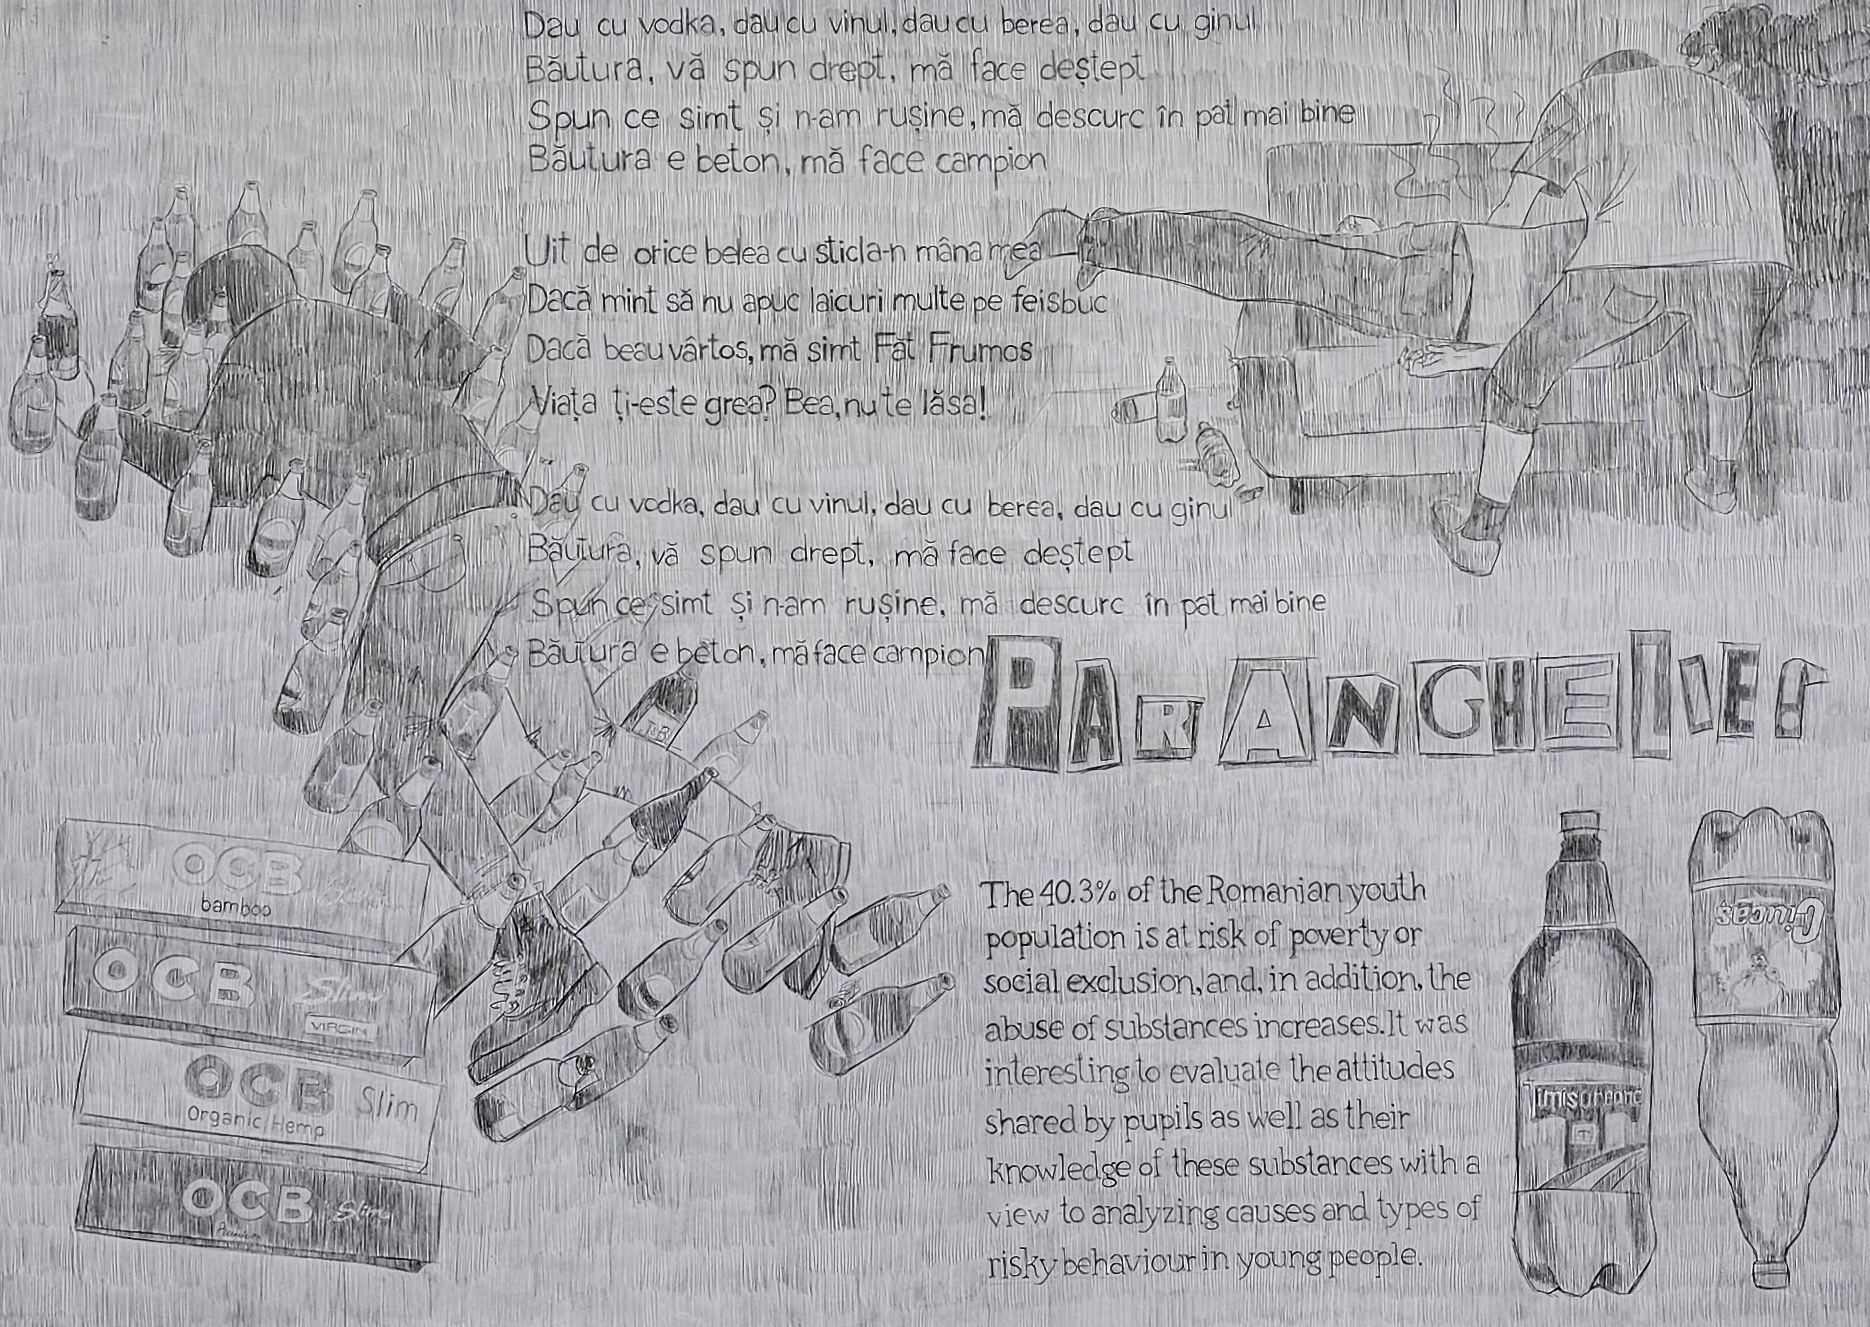 Dau cu vodka, dau cu vinul, dau cu berea, dau cu ginul
Băutura, vă spun drept, mă face deștept
Spun ce simt și n-am rușine, mă descurc în pat mai bine
Băutura e beton, mă face campion
Uit de orice belea cu sticla-n mâna mea
Dacă mint să nu apuc laicuri multe pe feisbuc
Dacă beau vârtos, mă simt Făt Frumos
Viața ți-este grea? Bea, nu te lăsa!
Dau cu vodka, dau cu vinul, dau cu berea, dau cu ginul
Băutura, vă spun drept, mă face deștept
Spun ce simt și n-am rușine, mă descurc în pat mai bine
Băutura e beton, mă face campion
PARANGHELIE!
OCB
bamboo
OCB Slim
VIRGIN
OCB Slim
Organic Hemp
OCB Slim
Premium
The 40.3% of the Romanian youth
population is at risk of poverty or
social exclusion, and, in addition, the
abuse of substances increases. It was
interesting to evaluate the attitudes
shared by pupils as well as their
knowledge of these substances with a
view to analyzing causes and types of
risky behaviour in young people.
Timisoreana
T
Ciucas